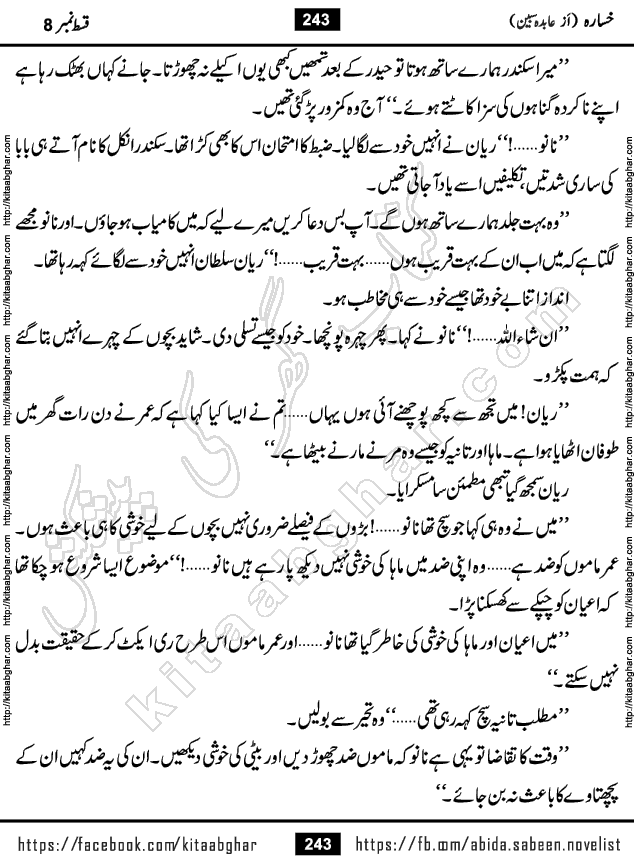 خسارہ (از عابدہ سبین)
243
قسط نمبر 8
’’میرا سکندر ہمارے ساتھ ہوتا تو حیدر کے بعد تمھیں کبھی یوں اکیلے نہ چھوڑتا۔ جانے کہاں بھٹک رہا ہے
اپنے ناکردہ گناہوں کی سزا کاٹتے ہوئے۔‘‘ آج وہ کمزور پڑ گئی تھیں۔
’’نانو......!‘‘ ریان نے انہیں خود سے لگا لیا۔ ضبط کا امتحان اس کا بھی کڑا تھا۔ سکندر انکل کا نام آتے ہی بابا
کی ساری شدتیں، تکلیفیں اسے یاد آجاتی تھیں۔
’’وہ بہت جلد ہمارے ساتھ ہوں گے۔ آپ بس دعا کریں میرے لیے کہ میں کامیاب ہو جاؤں۔ اور نانو مجھے
لگتا ہے کہ میں اب ان کے بہت قریب ہوں...... بہت قریب......!‘‘ ریان سلطان انہیں خود سے لگائے کہہ رہا تھا۔
انداز اتنا بے خود تھا جیسے خود سے ہی مخاطب ہو۔
’’ان شاء اللہ......!‘‘ نانو نے کہا۔ پھر چہرہ پونچھا۔ خود کو جیسے تسلی دی۔ شاید بچوں کے چہرے انہیں بتا گئے
کہ ہمت پکڑو۔
’’ریان! میں تجھ سے کچھ پوچھنے آئی ہوں یہاں......تم نے ایسا کیا کہا ہے کہ عمر نے دن رات گھر میں
طوفان اٹھایا ہوا ہے۔ ماہا اور تانیہ کو جیسے وہ مرنے مارنے بیٹھا ہے۔‘‘
ریان سمجھ گیا تبھی مطمئن سا مسکرایا۔
’’میں نے وہ ہی کہا جو سچ تھا نانو......! بڑوں کے فیصلے ضروری نہیں بچوں کے لیے خوشی کا ہی باعث ہوں۔
عمر ماموں کو ضد ہے...... وہ اپنی ضد میں ماہا کی خوشی نہیں دیکھ پا رہے ہیں نانو......!‘‘ موضوع ایسا شروع ہو چکا تھا
کہ اعیان کو چپکے سے کھسکنا پڑا۔
’’میں اعیان اور ماہا کی خوشی کی خاطر گیا تھا نانو...... اور عمر ماموں اس طرح ری ایکٹ کر کے حقیقت بدل
نہیں سکتے۔‘‘
’’مطلب تانیہ سچ کہہ رہی تھی......‘‘ وہ تحیر سے بولیں۔
’’وقت کا تقاضا تو یہی ہے نانو کہ ماموں ضد چھوڑ دیں اور بیٹی کی خوشی دیکھیں۔ ان کی یہ ضد کہیں ان کے
پچھتاوے کا باعث نہ بن جائے۔‘‘
http://kitaabghar.com http://kitaabghar.com http://kitaabghar.com http://kitaabghar.com http://kitaabghar.com http://kitaabghar.com
http://kitaabghar.com http://kitaabghar.com http://kitaabghar.com http://kitaabghar.com http://kitaabghar.com http://kitaabghar.com
کتاب گھر کی پیشکش
kitaabghar.com
https://facebook.com/kitaabghar
243
https://fb.com/abida.sabeen.novelist